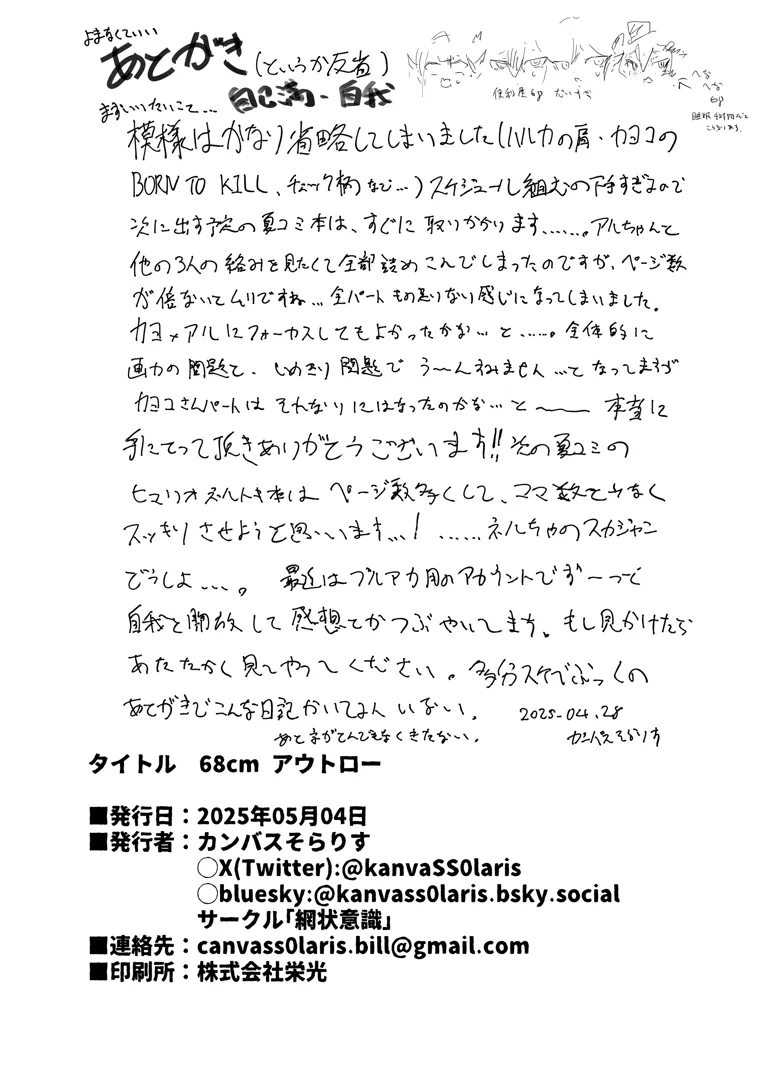 よまなくていい
あとがき(というか反省)
自己満・自我
まずいいたいこと…
便利屋68 だいすき
へな
へな
68
模様はかなり省略してしまいました(ハルカの肩・カヨコの
BORN TO KILL、チェック柄など…)スケジュール組むの下手すぎるので
次に出す予定の夏コミ本は、すぐに取りかかります……。アルちゃんと
他の3人の絡みを見たくて全部詰めこんでしまったのですが、ページ数
が倍ないとムリですね…全パートもの足りない感じになってしまいました。
カヨ×アルにフォーカスしてもよかったかな…と……。全体的に
画力の問題と、しめきり問題でう〜んすみません…となってますが
カヨコさんパートはそれなりにはなったのかな…と〜 本当に
手にとって頂きありがとうございます!!次の夏コミの
ヒマリオネルトキ本はページ数多くして、コマ数を少なく
スッキリさせようと思います…!……ネルちゃのスカジャン
どうしよ…。 最近はブルアカ用のアカウントでずーっと
自我を開放して感想とかつぶやいてます。もし見かけたら
あたたかく見てやってください。多分スケベぶっくの
あとがきでこんな日記かいてる人いない。 2025.04.28
あと字がとんでもなくきたない。 カンバスそらりす
タイトル 68cm アウトロー
■発行日:2025年05月04日
■発行者:カンバスそらりす
○X(Twitter):@kanvaSS0laris
○bluesky:@kanvass0laris.bsky.social
サークル「網状意識」
■連絡先:canvass0laris.bill@gmail.com
■印刷所:株式会社栄光